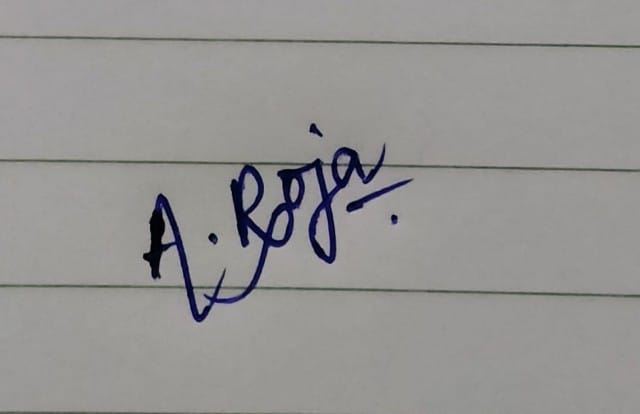 A. Roja